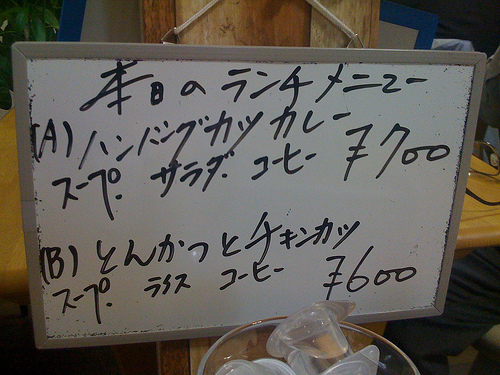 本日のランチメニュー
(A) ハンバーグカツカレー ¥700
スープ. サラダ. コーヒー
(B) とんかつとチキンカツ
スープ. ライス コーヒー ¥600